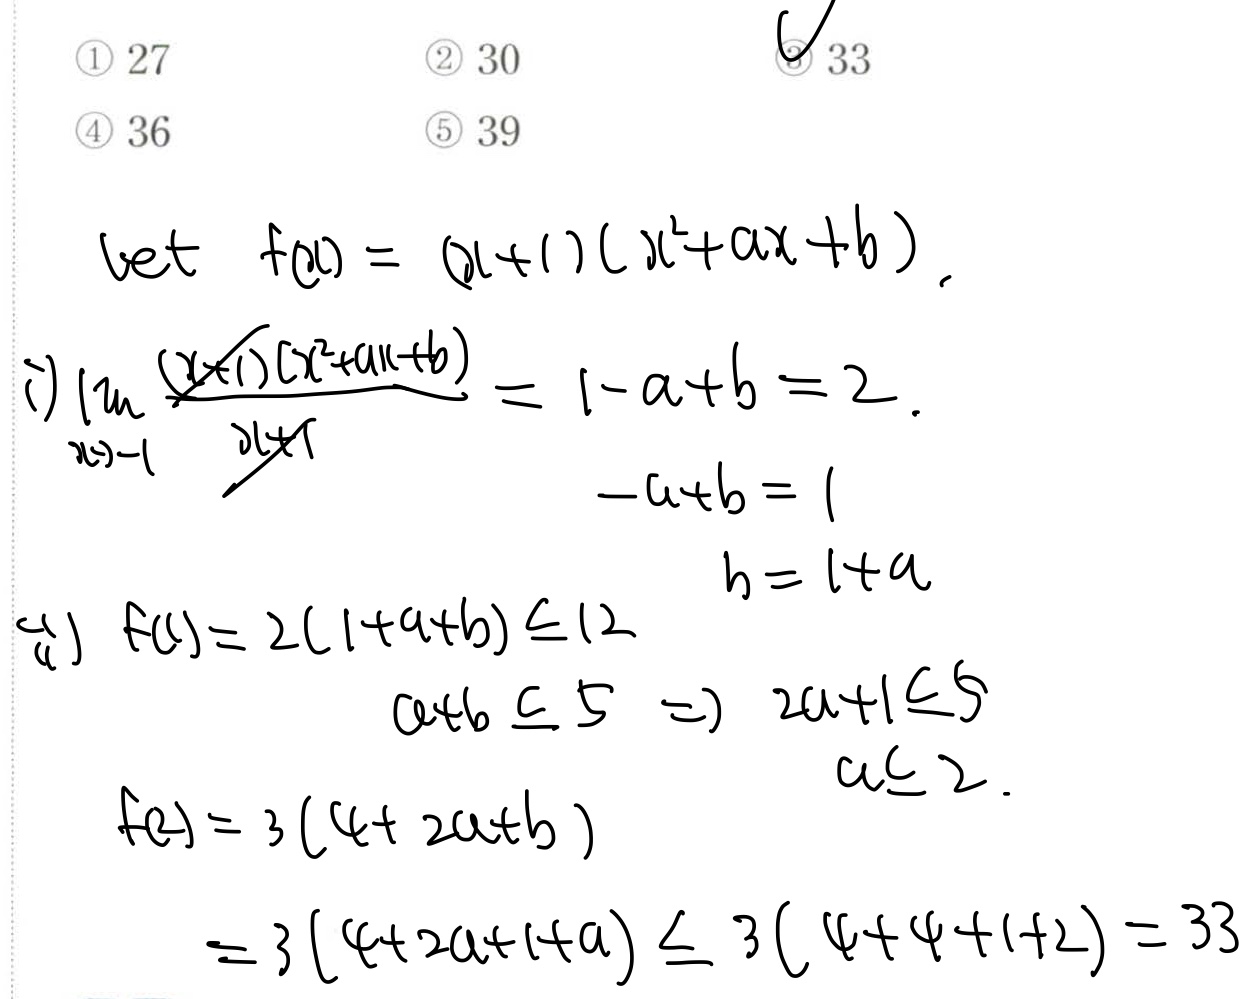 ① 27 ② 30 ③ 33
④ 36 ⑤ 39
let f(x) = (x+1)(x²+ax+b).
i) lim x→-1 (x+1)(x²+ax+b) / x+1 = 1-a+b = 2.
-a+b = 1
b = 1+a
ii) f(1) = 2(1+a+b) ≤ 12
a+b ≤ 5 ⇒ 2a+1 ≤ 5
a ≤ 2.
f(2) = 3(4+2a+b)
= 3(4+2a+1+a) ≤ 3(4+4+1+2) = 33